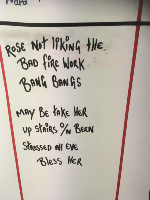 ROSE NOT LIKING THE
BAD FIRE WORK
BANG BANGS
MAY BE TAKE HER
UP STAIRS O/N BEEN
STRESSED ALL EVE
BLESS HER